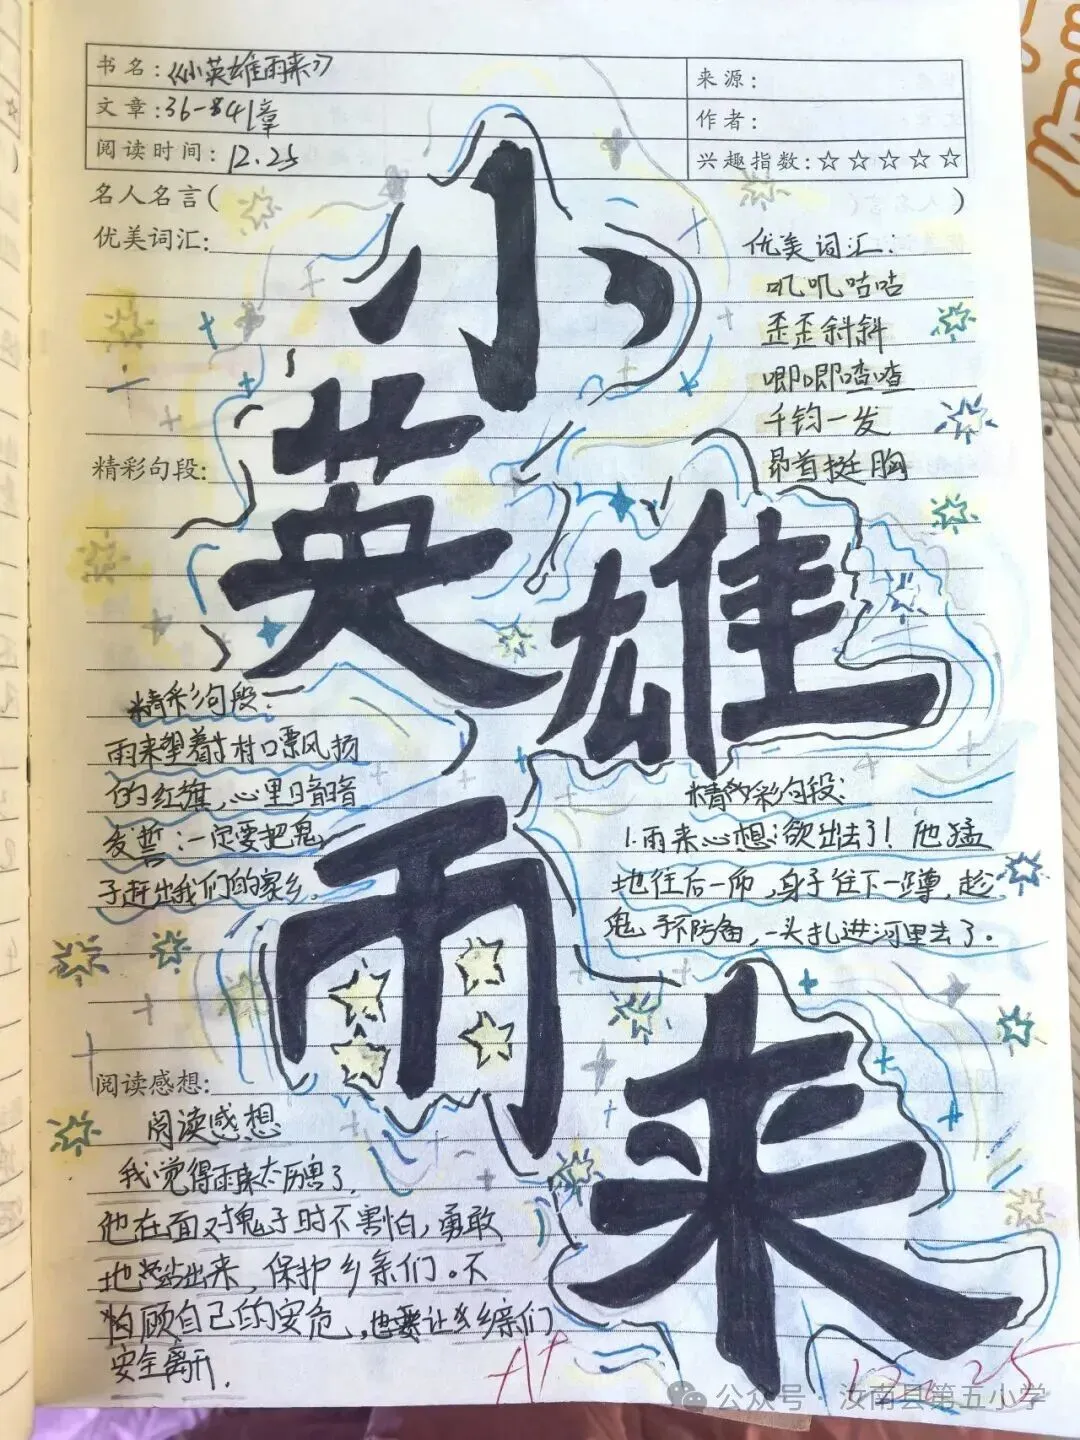 书名:《小英雄雨来》
来源:
文章:36-841章
作者:
阅读时间:12.25
兴趣指数:☆☆☆☆☆
名人名言( )
优美词汇:
优美词汇:
叽叽咕咕
歪歪斜斜
唧唧喳喳
千钧一发
昂首挺胸
小
英
雄
雨
来
精彩句段:
精彩句段:
雨来望着村口飘风扬
的红旗,心里暗暗
发誓:一定要把鬼
子赶出我们的家乡.
精彩句段:
1.雨来心想:欲出去了!他猛
地往后一,身子往下一蹲,趁
鬼子不防备,一头扎进河里去了.
阅读感想:
阅读感想
我觉得雨来太历害了,
他在面对鬼子时不害怕,勇敢
地站出来,保护乡亲们。不
怕顾自己的安危,也要让乡亲们
安全离开.
A+
12.25
公众号·汝南县第五小学